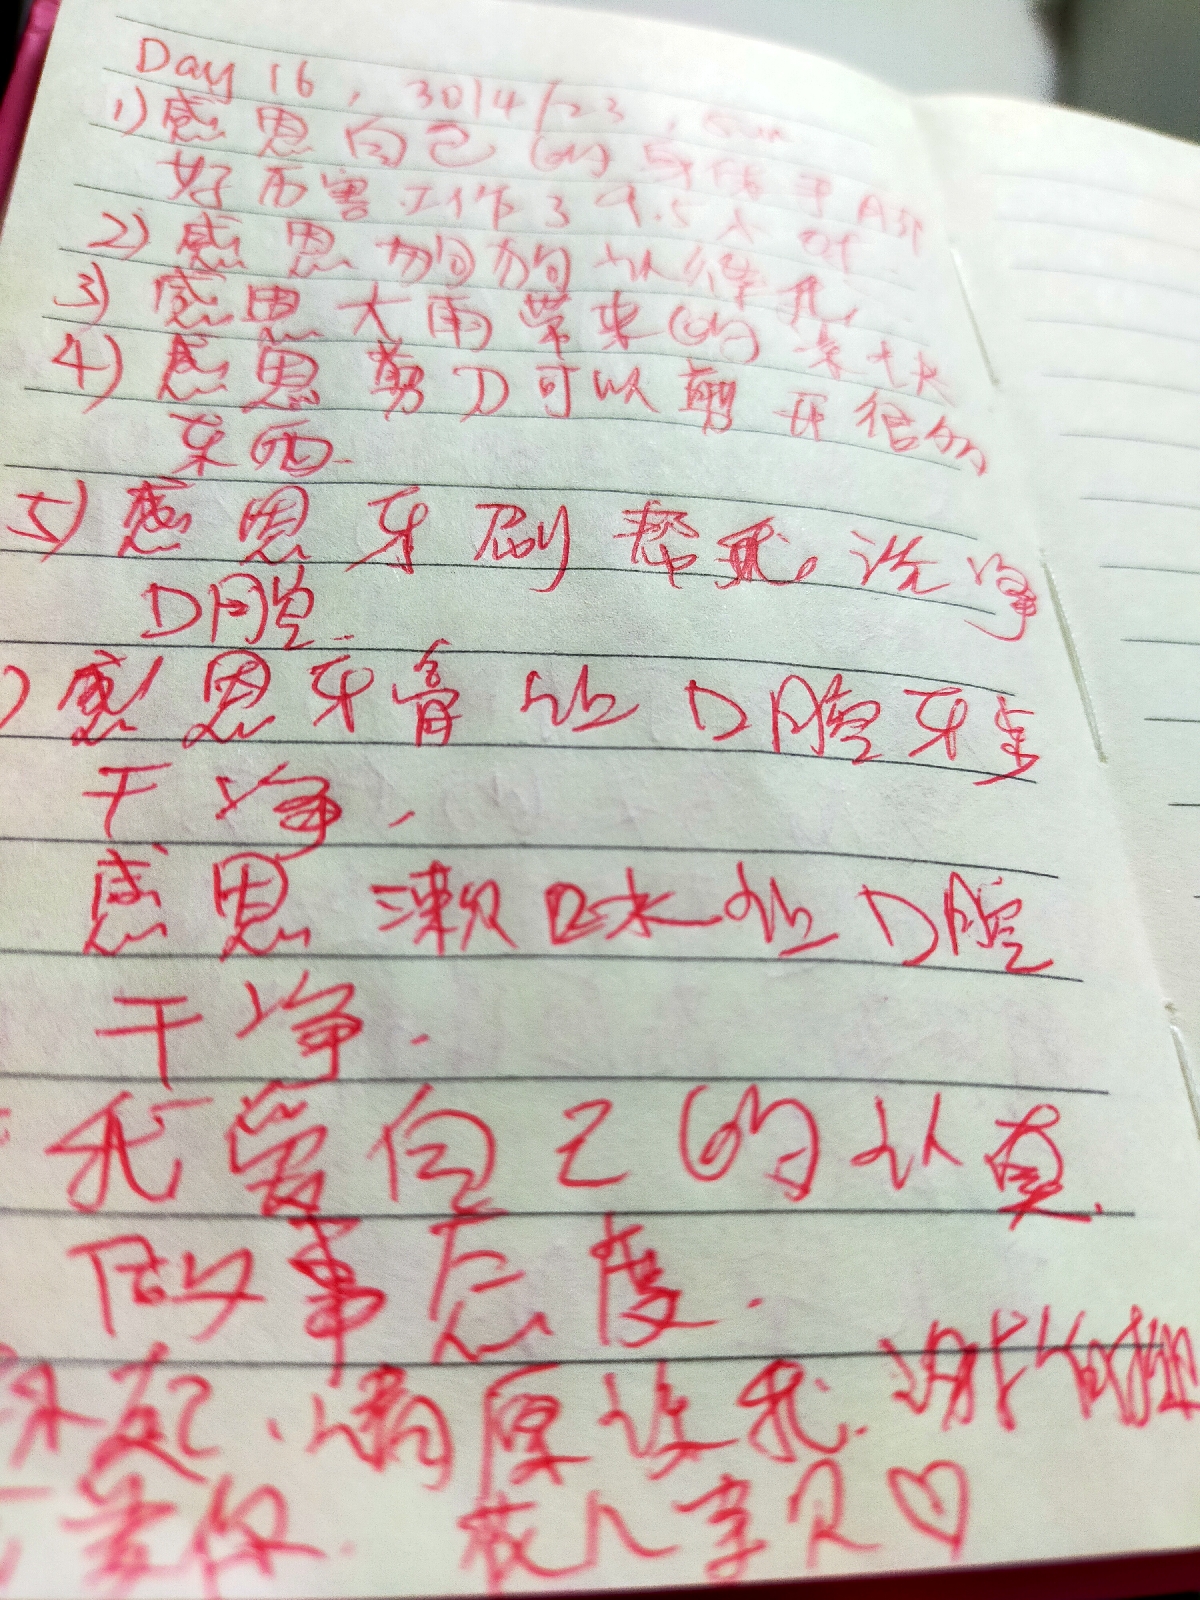 Day 16, 30/4/23, Sun
1) 感恩自己的身体
好厉害工作了9.5小时
2) 感恩狗狗
3) 感恩大雨带来的
4) 感恩剪刀可以剪开很多
东西.
5) 感恩牙刷帮我洗净
口腔.
) 感恩牙膏让口腔牙齿
干净.
感恩漱口水让口腔
干净.
我爱自己的认真
做事态度.
对不起, 请原谅我. 谢谢
我爱你. 我的宝贝♡